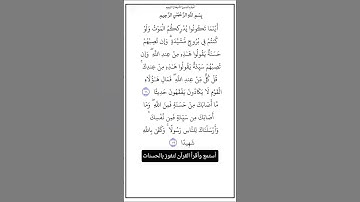 بِسْمِ اللَّهِ الرَّحْمَٰنِ الرَّحِيمِ
أَيْنَمَا تَكُونُوا يُدْرِككُّمُ الْمَوْتُ وَلَوْ
كُنتُمْ فِي بُرُوجٍ مُّشَيَّدَةٍ ۗ وَإِن تُصِبْهُمْ
حَسَنَةٌ يَقُولُوا هَٰذِهِ مِنْ عِندِ اللَّهِ ۖ وَإِن
تُصِبْهُمْ سَيِّئَةٌ يَقُولُوا هَٰذِهِ مِنْ عِندِكَ ۚ
قُلْ كُلٌّ مِّنْ عِندِ اللَّهِ ۖ فَمَالِ هَٰؤُلَاءِ
الْقَوْمِ لَا يَكَادُونَ يَفْقَهُونَ حَدِيثًا
مَّا أَصَابَكَ مِنْ حَسَنَةٍ فَمِنَ اللَّهِ ۖ وَمَا
أَصَابَكَ مِن سَيِّئَةٍ فَمِن نَّفْسِكَ ۚ
وَأَرْسَلْنَاكَ لِلنَّاسِ رَسُولًا ۚ وَكَفَىٰ بِاللَّهِ
شَهِيدًا
أستمع وأقرأ القرآن لتفوز بالحسنات